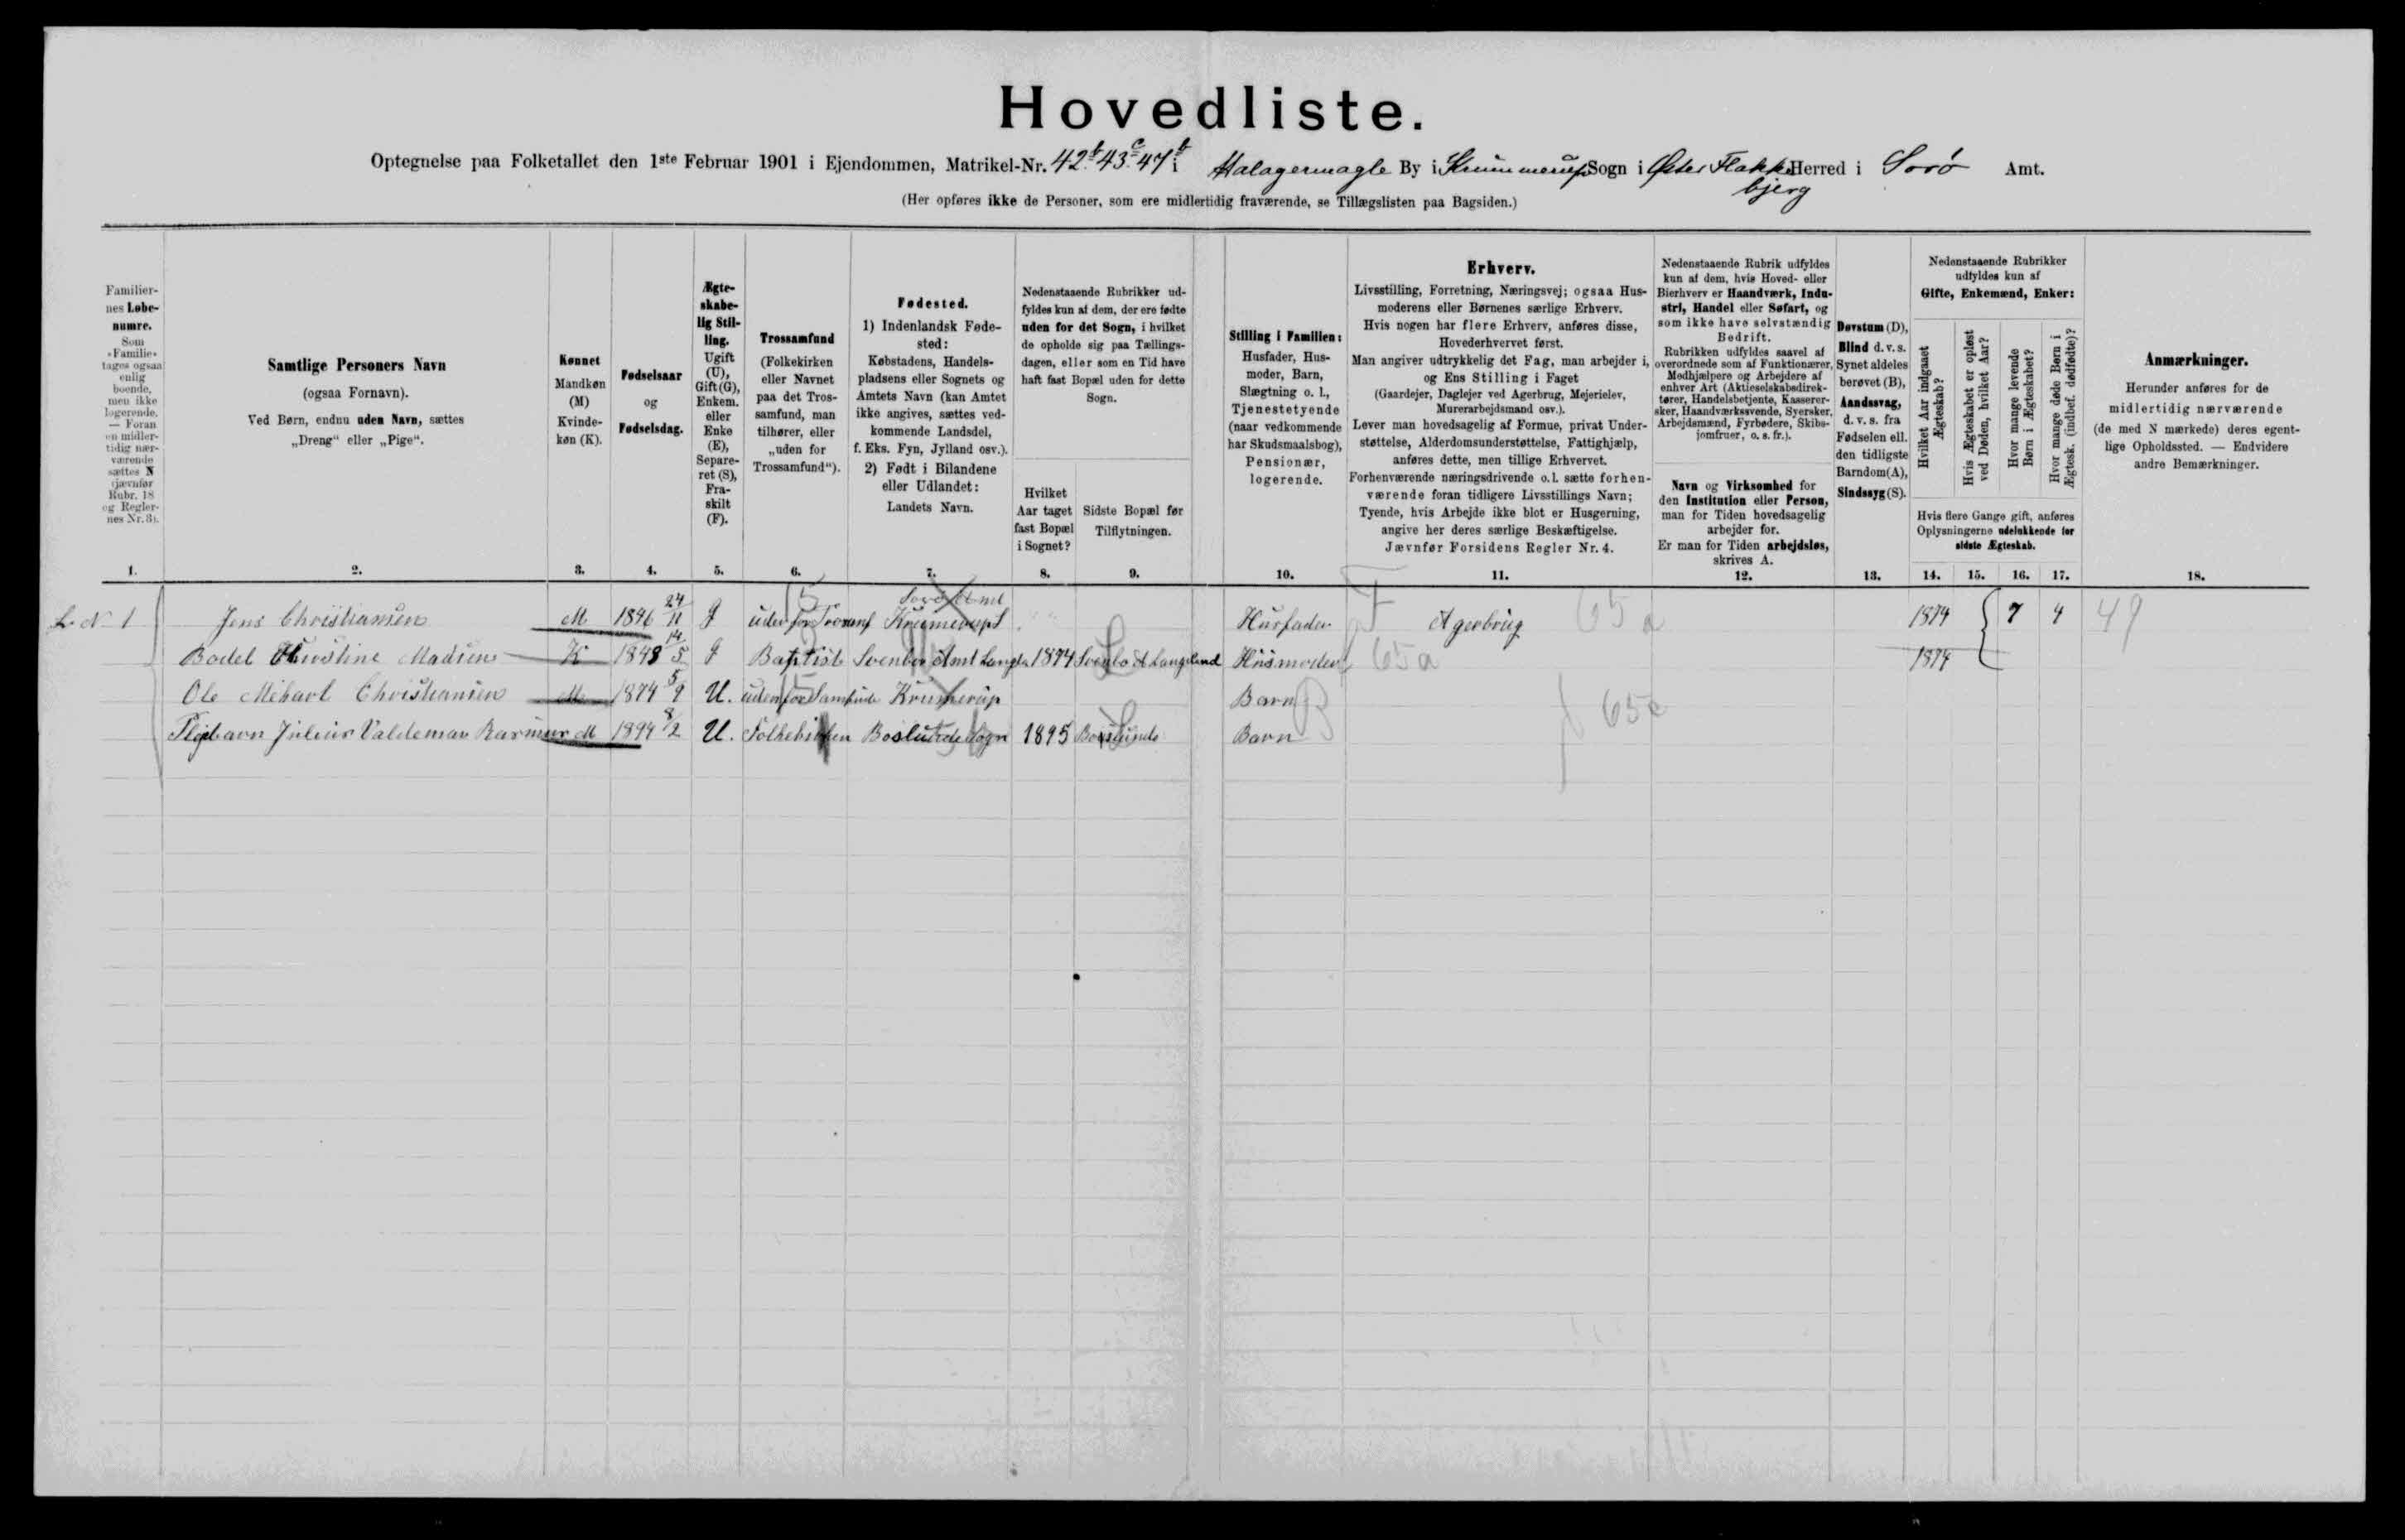 Hovedliste.
Optegnelse paa Folketallet den 1ste Februar 1901 i Ejendommen, Matrikel-Nr. 42b 43c 47b i Halagermagle By i Krummerup Sogn i Øster Flakke Herred i Sorö Amt.
bjerg
(Her opføres ikke de Personer, som ere midlertidig fraværende, se Tillægslisten paa Bagsiden.)
Familier-
nes Løbe-
numre.
Som
»Familie«
tages ogsaa
enlig
boende,
men ikke
logerende.
— Foran
en midler-
tidig nær-
værende
sættes N
(jævnfør
Rubr. 18
og Regler-
nes Nr. 3).
1.
Samtlige Personers Navn
(ogsaa Fornavn).
Ved Børn, endnu uden Navn, sættes
„Dreng“ eller „Pige“.
2.
Kønnet
Mandkøn
(M)
Kvinde-
køn (K).
3.
Fødselsaar
og
Fødselsdag.
4.
Ægte-
skabe-
lig Stil-
ling.
Ugift
(U),
Gift (G),
Enkem.
eller
Enke
(E),
Separe-
ret (S),
Fra-
skilt
(F).
5.
Trossamfund
(Folkekirken
eller Navnet
paa det Tros-
samfund, man
tilhører, eller
„uden for
Trossamfund“).
6.
Fødested.
1) Indenlandsk Føde-
sted:
Købstadens, Handels-
pladsens eller Sognets og
Amtets Navn (kan Amtet
ikke angives, sættes ved-
kommende Landsdel,
f. Eks. Fyn, Jylland osv.).
2) Født i Bilandene
eller Udlandet:
Landets Navn.
7.
Nedenstaaende Rubrikker ud-
fyldes kun af dem, der ere fødte
uden for det Sogn, i hvilket
de opholde sig paa Tællings-
dagen, eller som en Tid have
haft fast Bopæl uden for dette
Sogn.
Hvilket
Aar taget
fast Bopæl
i Sognet?
8.
Sidste Bopæl før
Tilflytningen.
9.
Stilling i Familien:
Husfader, Hus-
moder, Barn,
Slægtning o. l.,
Tjenestetyende
(naar vedkommende
har Skudsmaalsbog),
Pensionær,
logerende.
10.
Erhverv.
Livsstilling, Forretning, Næringsvej; ogsaa Hus-
moderens eller Børnenes særlige Erhverv.
Hvis nogen har flere Erhverv, anføres disse,
Hovederhvervet først.
Man angiver udtrykkelig det Fag, man arbejder i,
og Ens Stilling i Faget
(Gaardejer, Daglejer ved Agerbrug, Mejerielev,
Murerarbejdsmand osv.).
Lever man hovedsagelig af Formue, privat Under-
støttelse, Alderdomsunderstøttelse, Fattighjælp,
anføres dette, men tillige Erhvervet.
Forhenværende næringsdrivende o. l. sætte forhen-
værende foran tidligere Livsstillings Navn;
Tyende, hvis Arbejde ikke blot er Husgerning,
angive her deres særlige Beskæftigelse.
Jævnfør Forsidens Regler Nr. 4.
11.
Nedenstaaende Rubrik udfyldes
kun af dem, hvis Hoved- eller
Bierhverv er Haandværk, Indu-
stri, Handel eller Søfart, og
som ikke have selvstændig
Bedrift.
Rubrikken udfyldes saavel af
overordnede som af Funktionærer,
Medhjælpere og Arbejdere af
enhver Art (Aktieselskabsdirek-
tører, Handelsbetjente, Kasserer-
sker, Haandværkssvende, Syersker,
Arbejdsmænd, Fyrbødere, Skibs-
jomfruer, o. s. fr.).
Navn og Virksomhed for
den Institution eller Person,
man for Tiden hovedsagelig
arbejder for.
Er man for Tiden arbejdsløs,
skrives A.
12.
Døvstum (D),
Blind d. v. s.
Synet aldeles
berøvet (B),
Aandssvag,
d. v. s. fra
Fødselen ell.
den tidligste
Barndom (A),
Sindssyg (S).
13.
Nedenstaaende Rubrikker
udfyldes kun af
Gifte, Enkemænd, Enker:
Hvilket Aar indgaaet
Ægteskab?
Hvis Ægteskabet er opløst
ved Døden, hvilket Aar?
Hvor mange levende
Børn i Ægteskabet?
Hvor mange døde Børn i
Ægtesk. (indbef. dødfødte)?
Hvis flere Gange gift, anføres
Oplysningerne udelukkende for
sidste Ægteskab.
14. 15. 16. 17.
Anmærkninger.
Herunder anføres for de
midlertidig nærværende
(de med N mærkede) deres egent-
lige Opholdssted. — Endvidere
andre Bemærkninger.
18.
Sorö Amt
L. N 1 Jens Christiansen M 1846 24/11 G uden for Trosamf Krumerup S Husfader F Agerbrug 65 a 1874 7 4 49
Bodel Christine Madsen K 1848 14/5 G Baptist Svenbor Amt Langla 1874 Svenbo A Langeland Husmoder 65 a 1874
Ole Mikael Christiansen M 1874 5/9 U. uden for Samfund Krumerup Barn 65 c
Plejebarn Julius Valdemar Rasmus M 1894 8/2 U. Folkekirken Boslunde Sogn 1895 Boslunde Barn